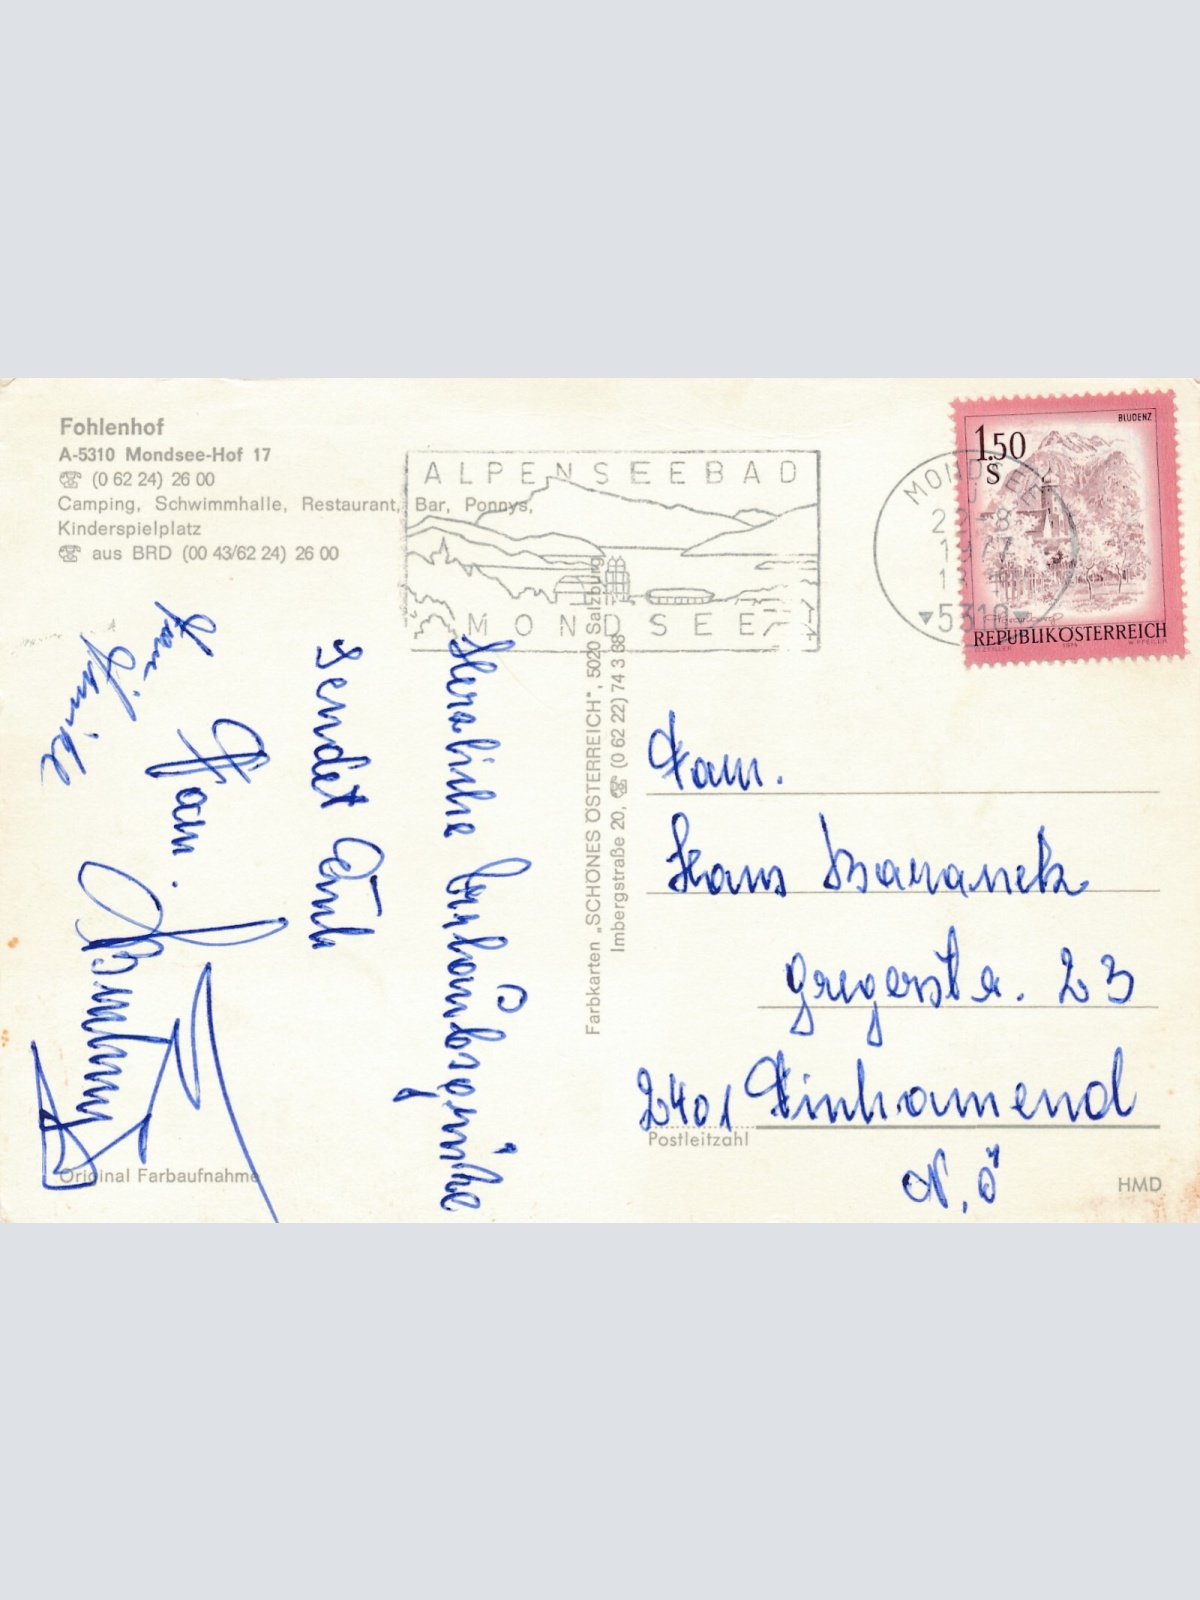 Fohlenhof
A-5310 Mondsee-Hof 17
☏ (0 62 24) 26 00
Camping, Schwimmhalle, Restaurant, Bar, Ponnys,
Kinderspielplatz
☏ aus BRD (00 43/62 24) 26 00
ALPENSEEBAD
MONDSEE
MONDSEE
1977
5310
BLUDENZ
1.50
S
REPUBLIK ÖSTERREICH
1974
Herzliche Urlaubsgrüße
Sendet Euch
Fam.
Fam.
Farbkarten „SCHÖNES ÖSTERREICH“, 5020 Salzburg
Imbergstraße 20, ☏ (0 62 22) 74 3 88
Fam.
Hans Baranek
Gregerstr. 23
2401 Fischamend
Postleitzahl
N.Ö
Original Farbaufnahme
HMD